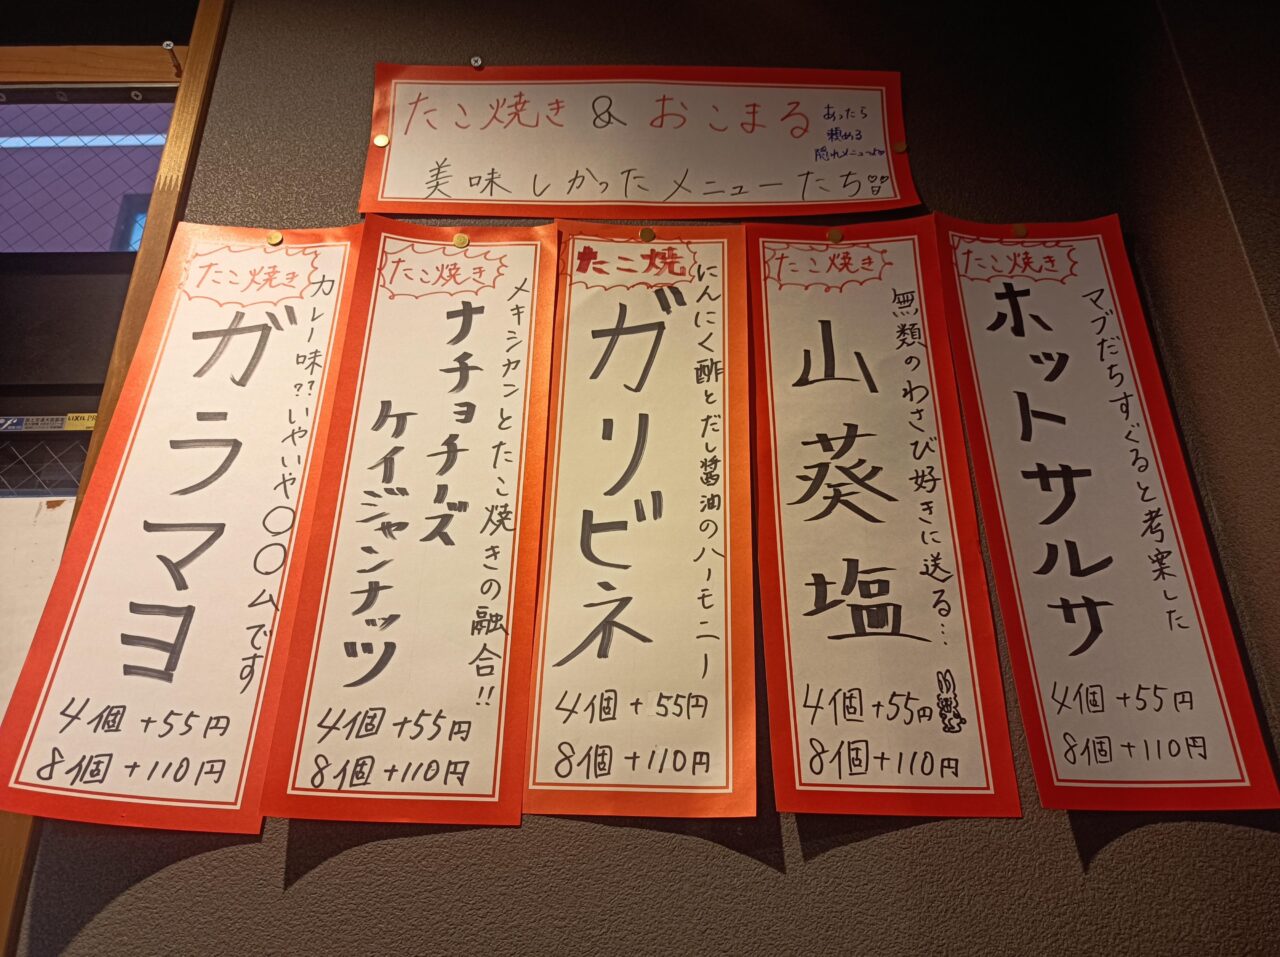 たこ焼き & おこまる
あったら
頼める
隠れメニューよ♡
美味しかったメニューたち
マブだちすぐると考案した
たこ焼き
ホットサルサ
4個 +55円
8個 +110円
無類のわさび好きに送る…
たこ焼き
山葵塩
4個 +55円
8個 +110円
にんにく酢とだし醤油のハーモニー
たこ焼
ガリビネ
4個 + 55円
8個 +110円
メキシカンとたこ焼きの融合!!
たこ焼き
ナチョチーズ
ケイジャンナッツ
4個 +55円
8個 +110円
カレー味??いやいや〇〇ムです
たこ焼き
ガラマヨ
4個 +55円
8個 +110円
LIXIL